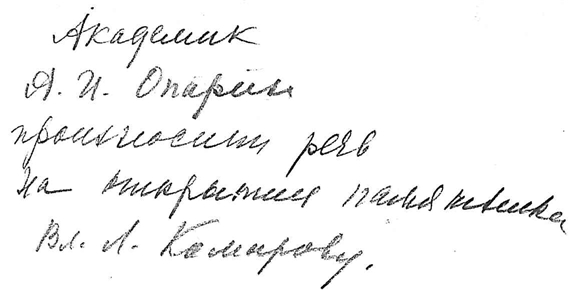 Академик
А. И. Опарин
произносит речь
на открытии памятника
Вл. Л. Комарову.